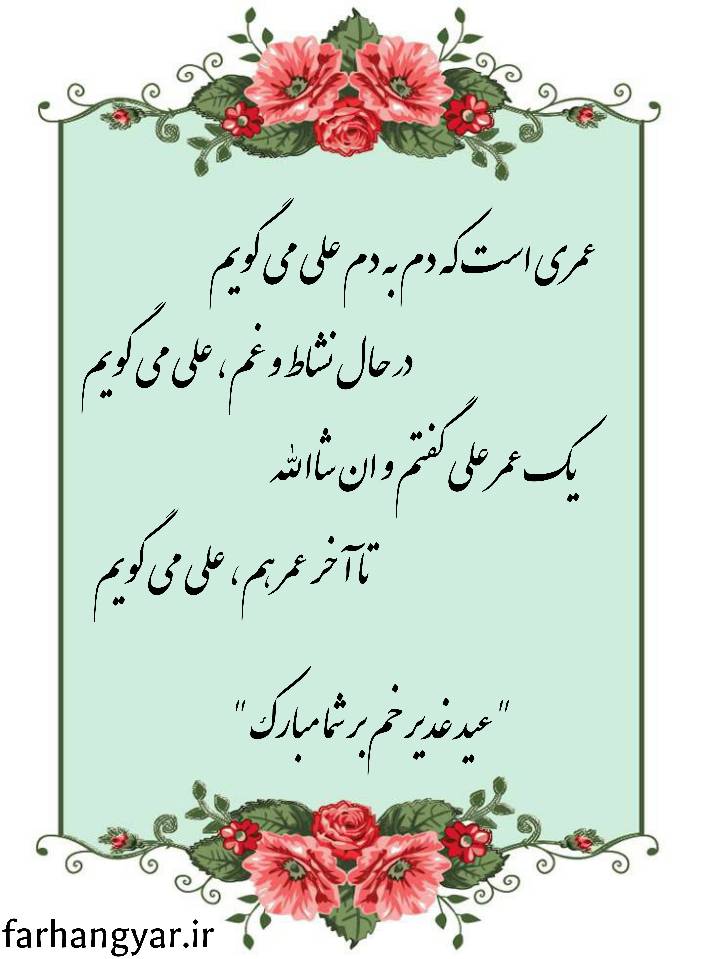 عمری است که دم به دم علی می گویم
در حال نشاط و غم، علی می گویم
یک عمر علی گفتم و ان شاالله
تا آخر عمر هم، علی می گویم
"عید غدیر خم بر شما مبارک"
farhangyar.ir